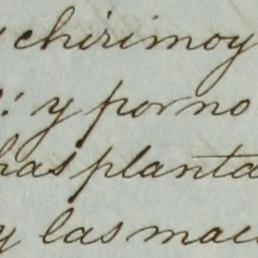 y chirimoy
: y por no
has planta
y las mac